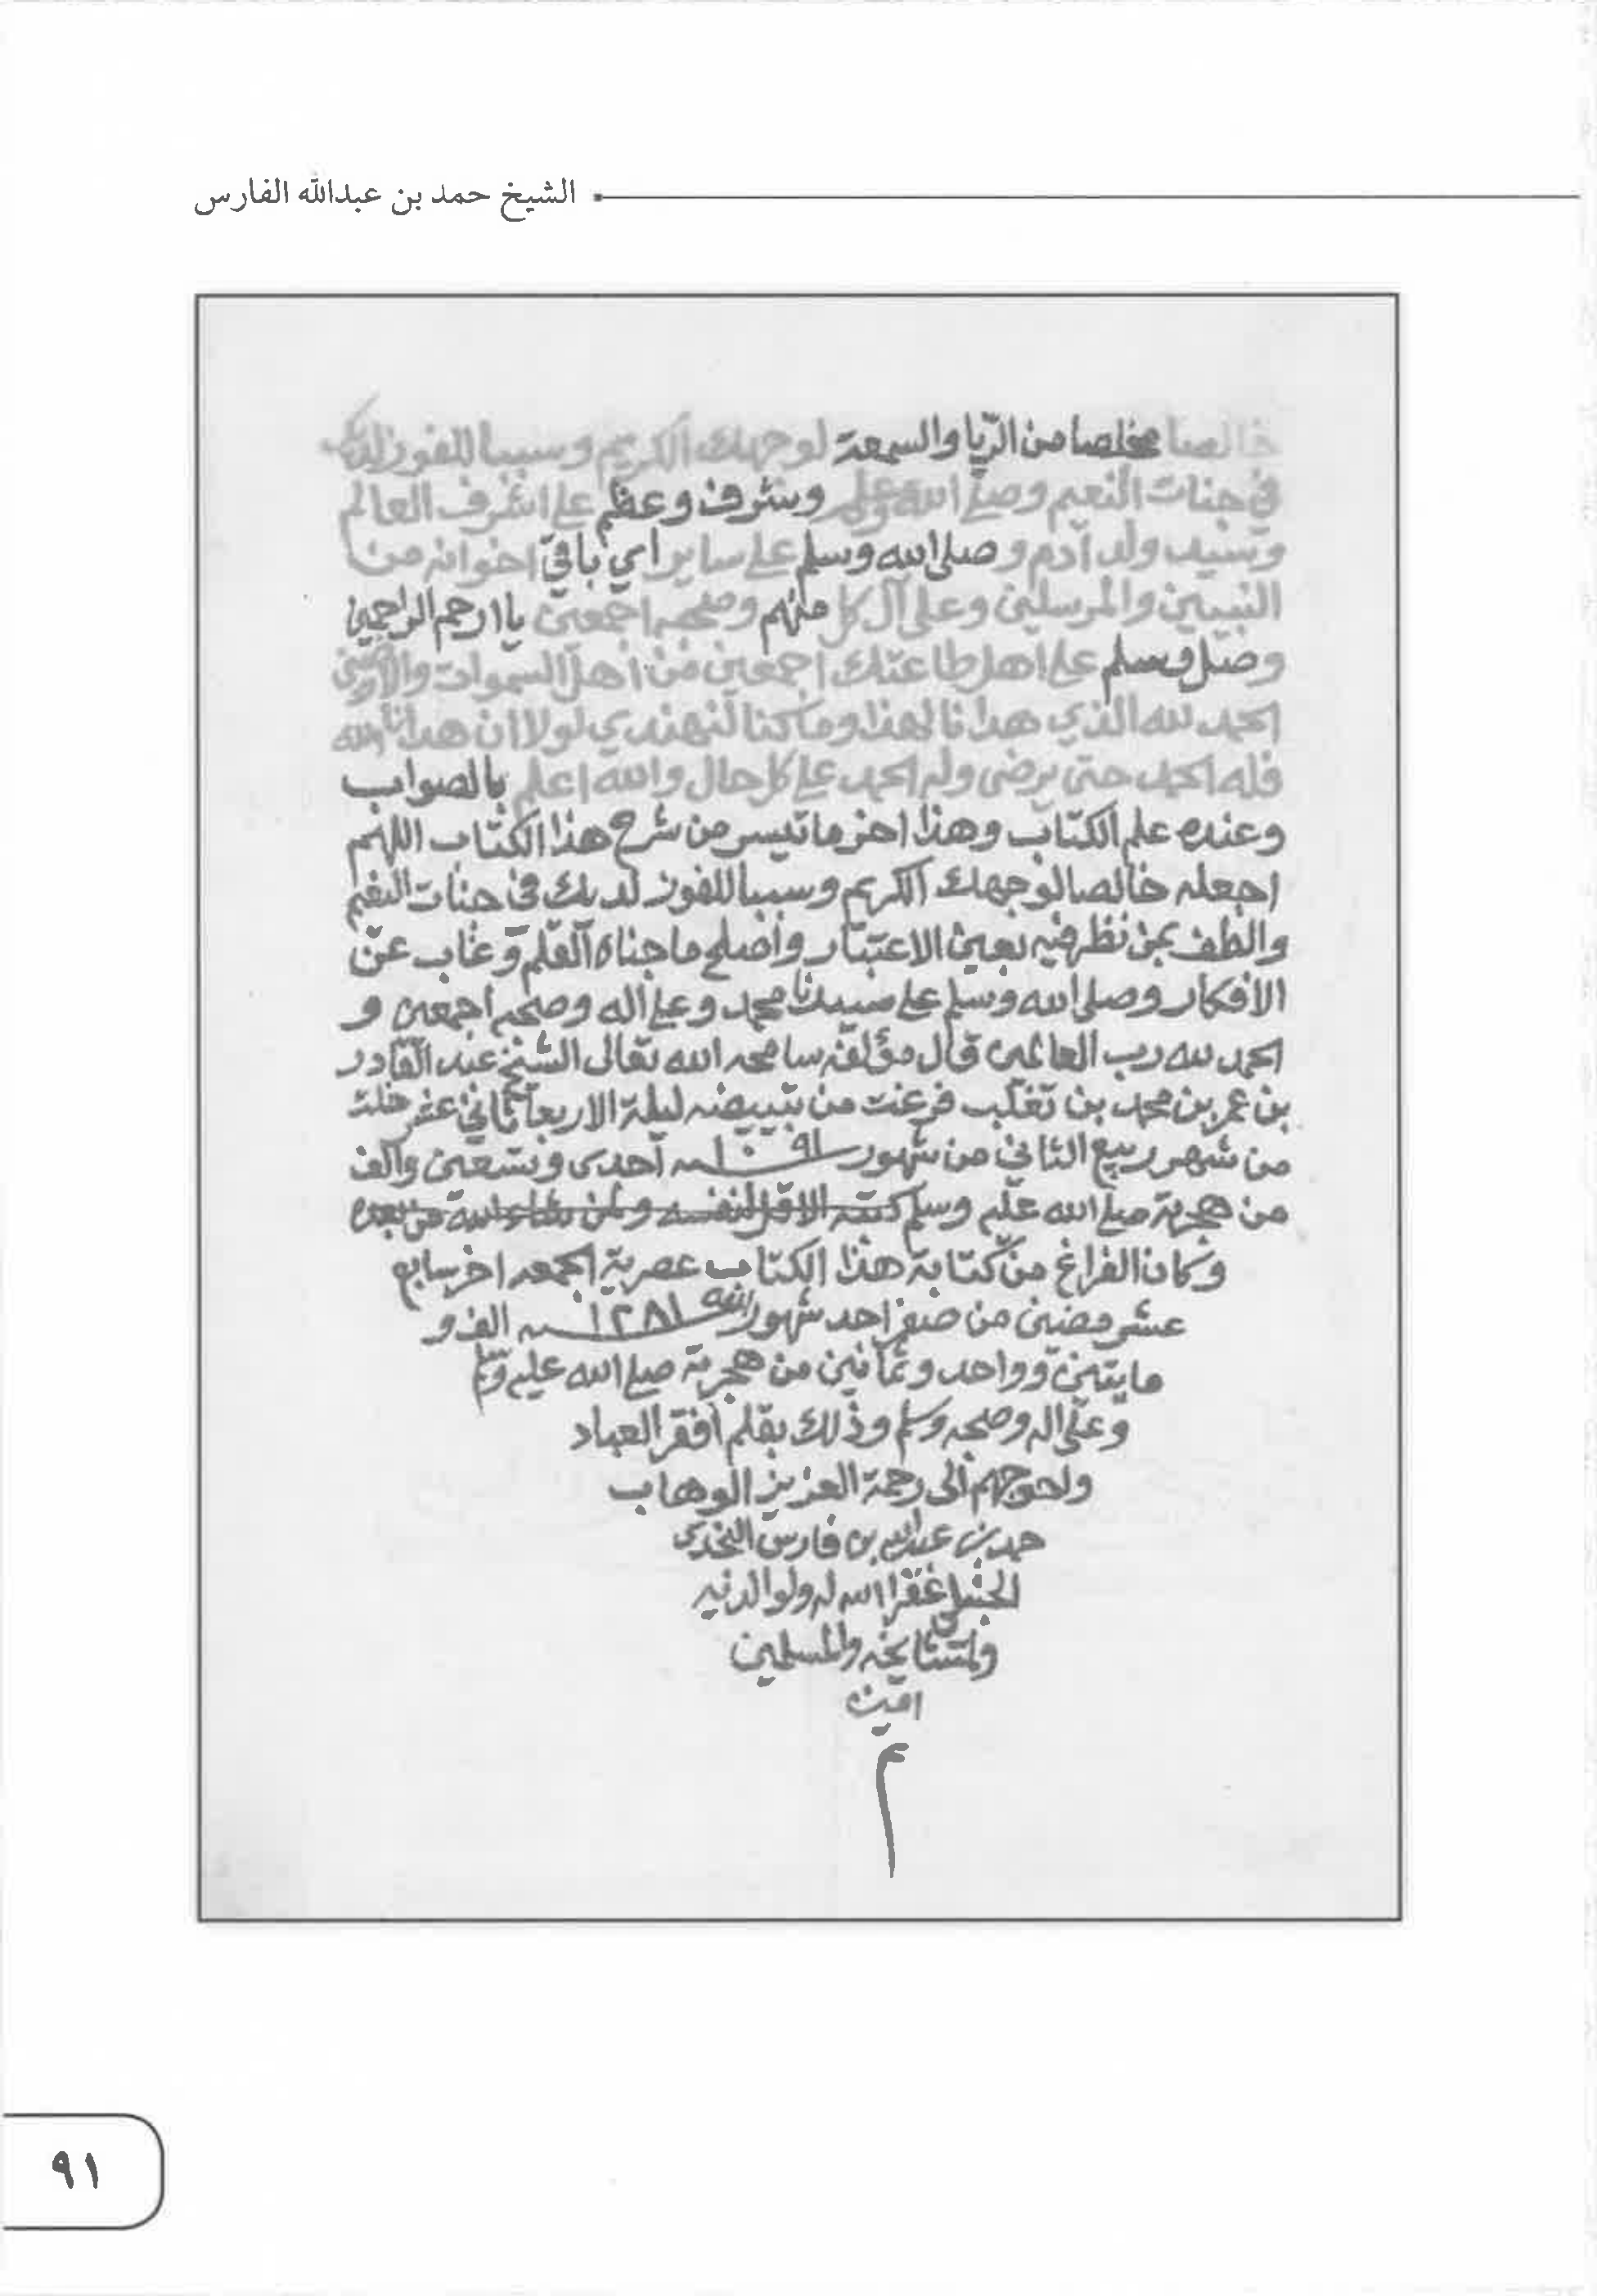 الشيخ حمد بن عبدالله الفارس
خالصا مخلصا من الريا والسمعة لوجهك الكريم وسببا للفوز لديك
في جنات النعيم وصلى الله وسلم وشرف وعظم على اشرف العالم
وسيد ولد آدم و صلى الله وسلم على ساير اي باقي اخوانه من
النبيين والمرسلين وعلى آل كل منهم وصحبه اجمعين يا ارحم الراحمين
وصل وسلم على اهل طاعتك اجمعين من اهل السموات والارضين
الحمد لله الذي هدانا لهذا وما كنا لنهتدي لولا ان هدانا الله
فله الحمد حتى يرضى وله الحمد على كل حال والله اعلم بالصواب
وعنده علم الكتاب وهذا اخر ما تيسر من شرح هذا الكتاب اللهم
اجعله خالصا لوجهك الكريم وسببا للفوز لديك في جنات النعيم
والطف بمن نظر فيه بعين الاعتبار واصلح ما جناه القلم وغاب عن
الافكار وصلى الله وسلم على سيدنا محمد وعلى اله وصحبه اجمعين و
الحمد لله رب العالمين قال مؤلفه سامحه الله تعالى الشيخ عبد القادر
بن عمر بن محمد بن تغلب فرغت من تبييضه ليلة الاربعا ثماني عشر خلت
من شهر ربيع الثاني من شهور ١٠٩١ سنه احدى وتسعين والف
من هجرته صلى الله عليه وسلم كتبه الاقل لنفسه ولمن شاء الله من بعده
وكان الفراغ من كتابة هذا الكتاب عصرية الجمعه اخر سابع
عشر مضين من صفر احد شهور سنه ١٢٨١ الف و
مايتين وواحد وثمانين من هجرته صلى الله عليه وسلم
وعلى اله وصحبه وسلم وذلك بقلم افقر العباد
واحوجهم الى رحمة العزيز الوهاب
حمد بن عبدالله بن فارس النجدي
الحنبلي غفر الله له ولوالديه
ولمشايخه والمسلمين
امين
تم
٩١